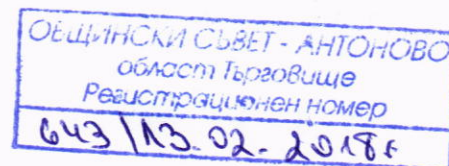 ОБЩИНСКИ СЪВЕТ - АНТОНОВО
област Търговище
Регистрационен номер
643 / 13.02.2018г